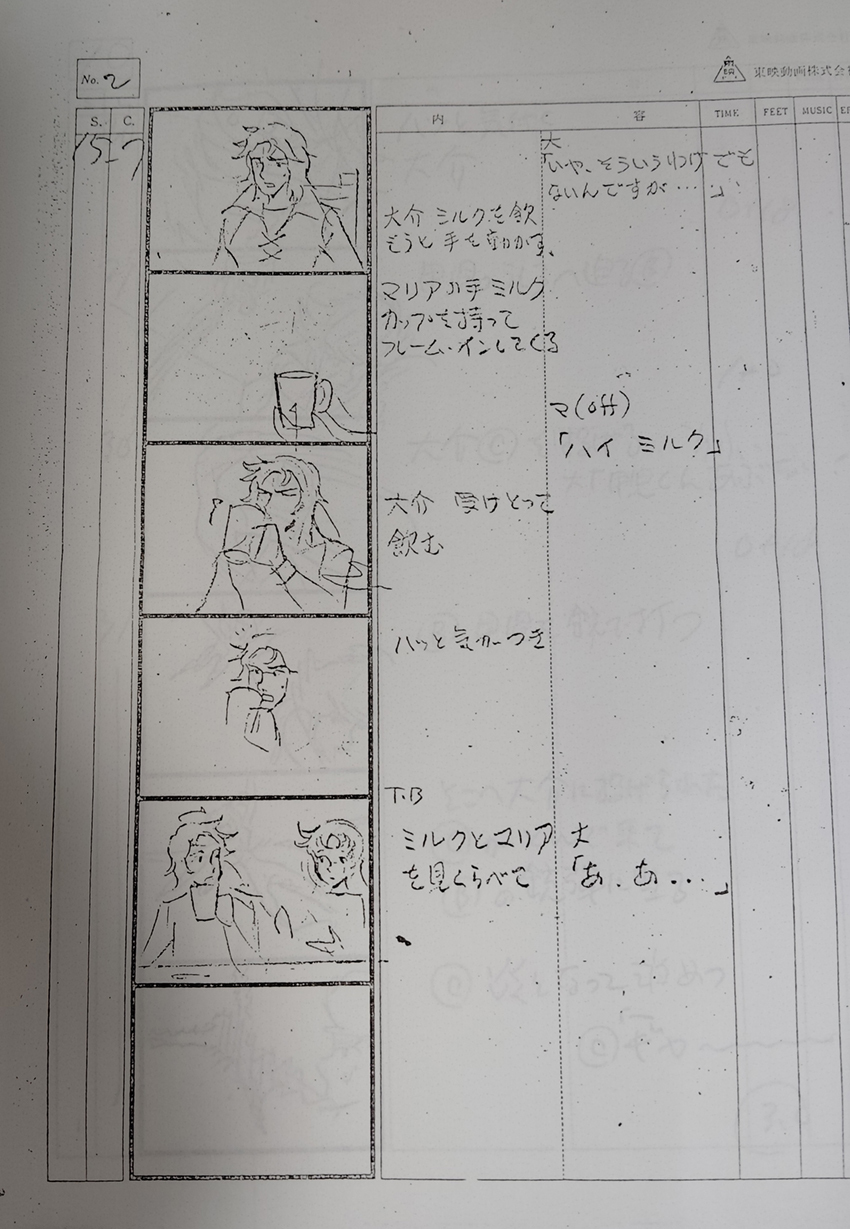 No. 2
東映動画株式会
S. C. 内 容 TIME FEET MUSIC
15-7
大
「いや、そういうわけでも
ないんですが…」
大介 ミルクを飲
もうと手を動かす、
マリアの手ミルク
カップを持って
フレーム・インしてくる
マ(off)
「ハイ ミルク」
大介 受けとって
飲む
ハッと気がつき
T.B
ミルクとマリア
を見くらべて
大
「あ、あ...」